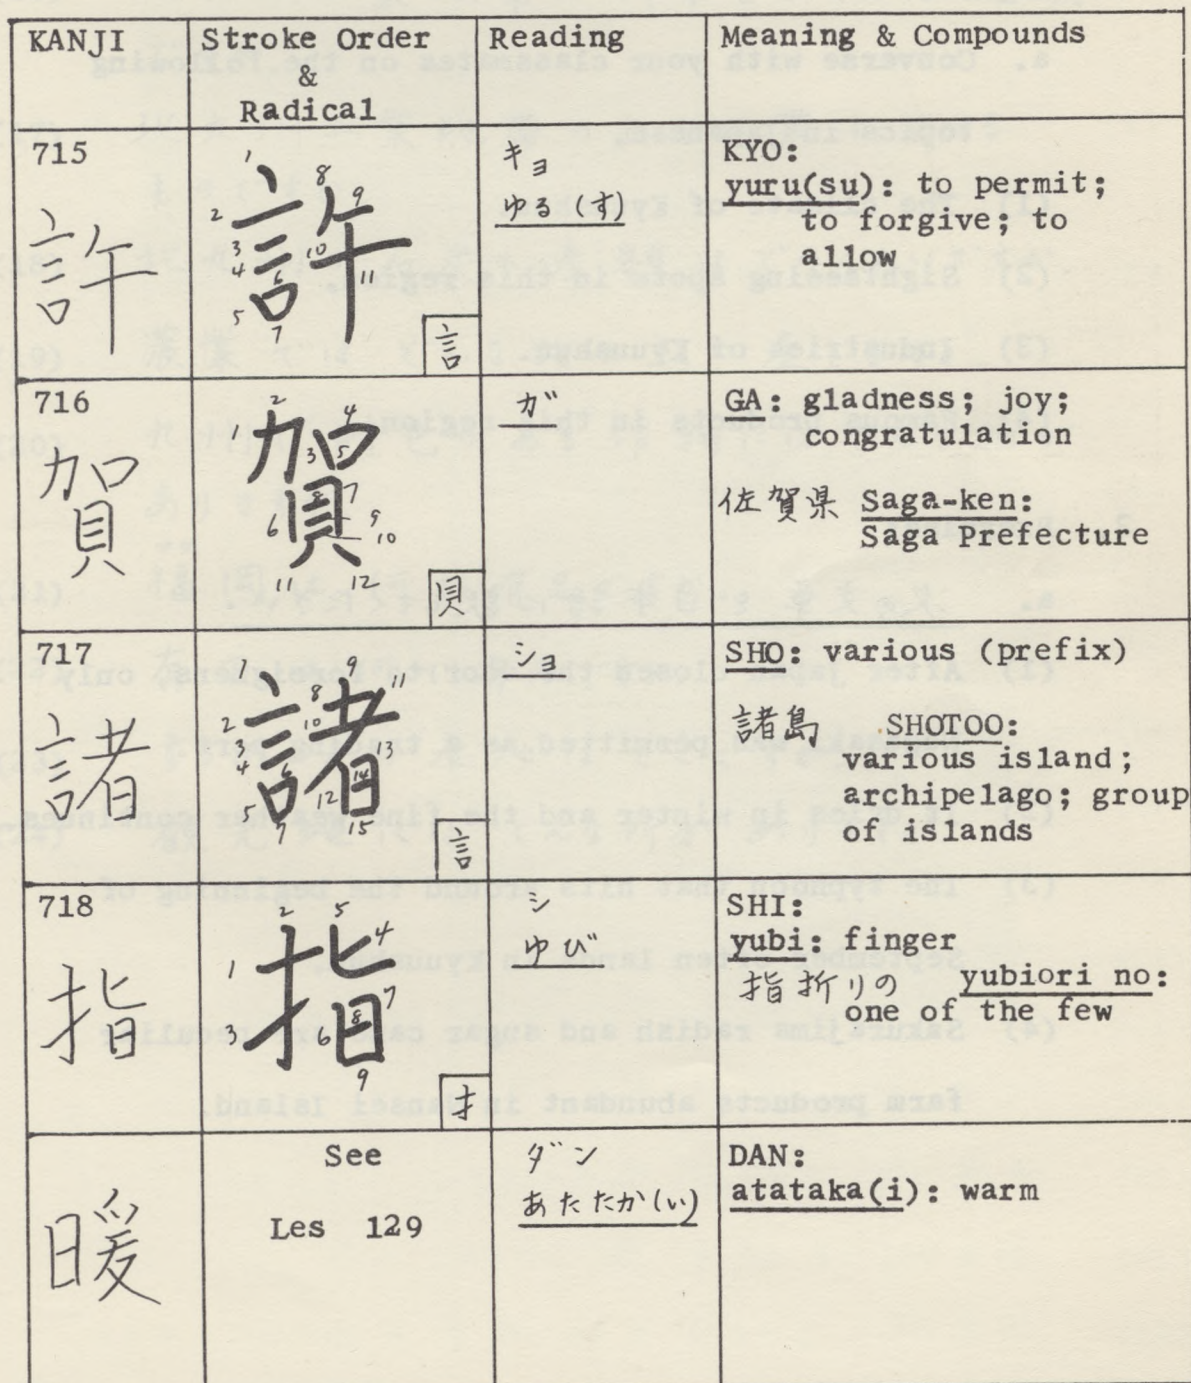 KANJI
Stroke Order
&
Radical
Reading
Meaning & Compounds
715
許
1 2 3 4 5 6 7 8 9 10 11
許
言
キョ
ゆる(す)
KYO:
yuru(su): to permit;
to forgive; to
allow
716
賀
1 2 3 4 5 6 7 8 9 10 11 12
賀
貝
ガ
GA: gladness; joy;
congratulation
佐賀県 Saga-ken:
Saga Prefecture
717
諸
1 2 3 4 5 6 7 8 9 10 11 12 13 14 15
諸
言
ショ
SHO: various (prefix)
諸島 SHOTOO:
various island;
archipelago; group
of islands
718
指
1 2 3 4 5 6 7 8 9
指
扌
シ
ゆび
SHI:
yubi: finger
指折りの yubiori no:
one of the few
暖
See
Les 129
ダン
あたたか(い)
DAN:
atataka(i): warm